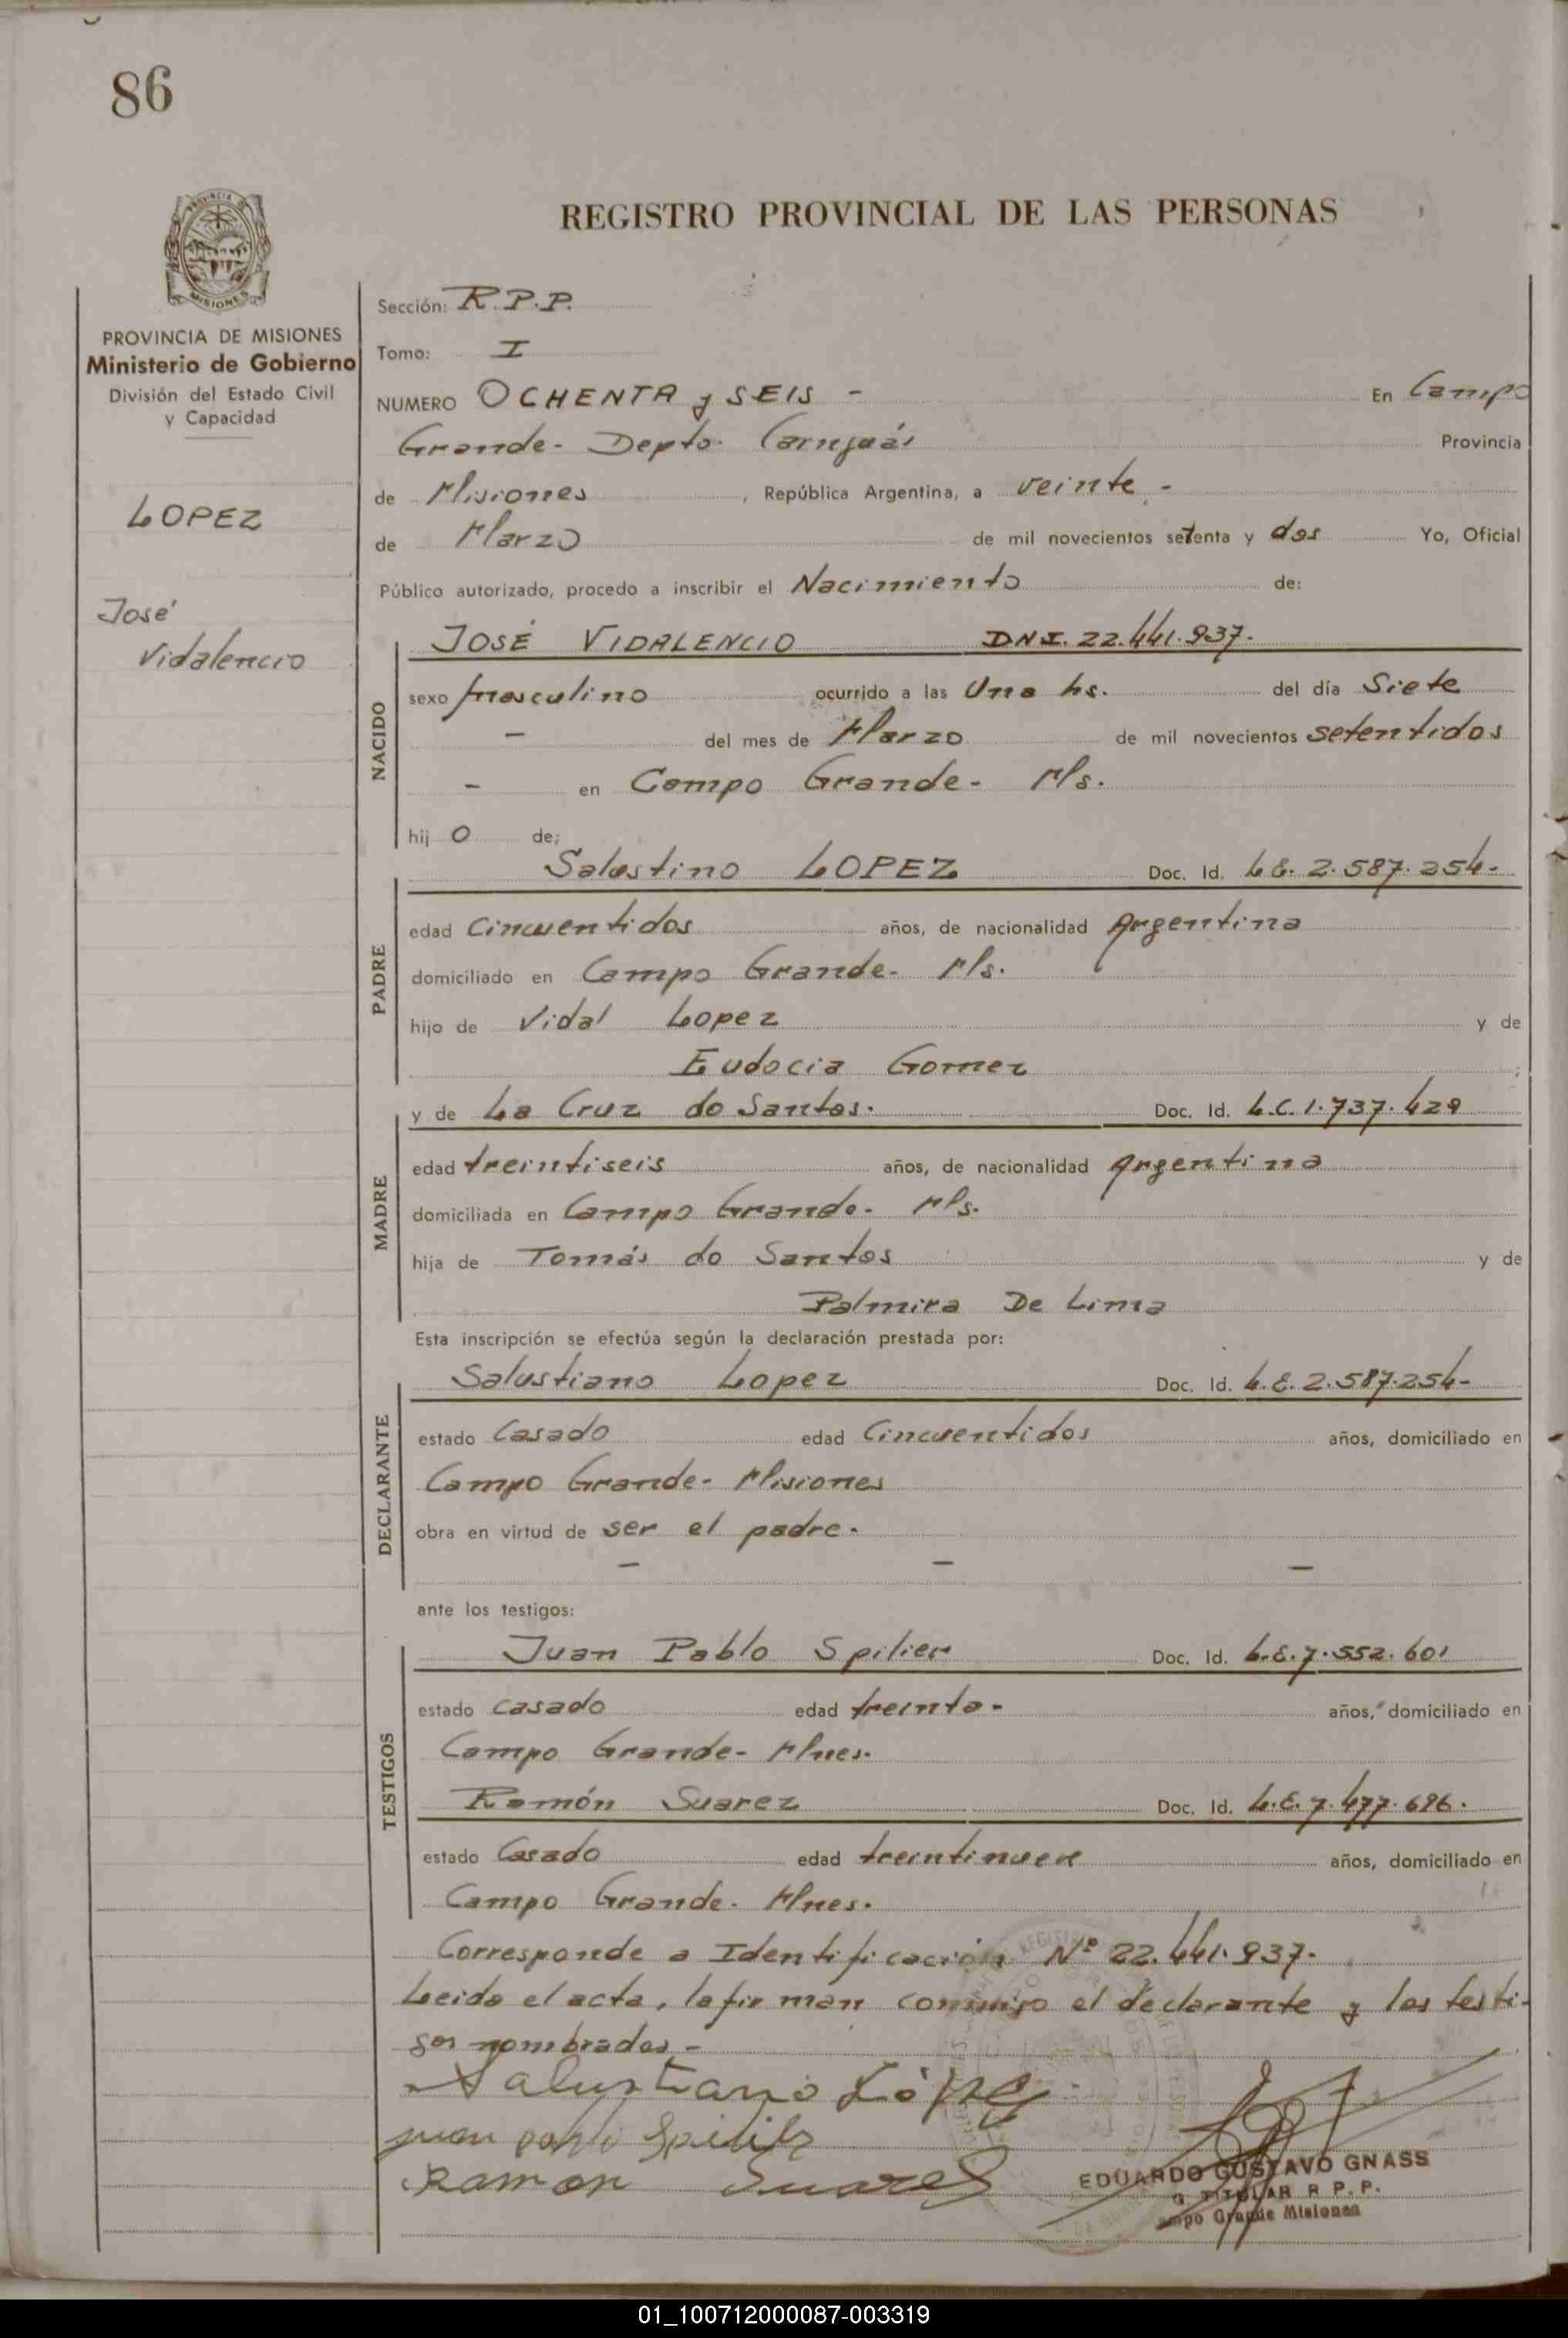 86
PROVINCIA DE MISIONES
Ministerio de Gobierno
División del Estado Civil
y Capacidad
LOPEZ
José
Vidalencio
REGISTRO PROVINCIAL DE LAS PERSONAS
Sección: R.P.P.
Tomo: I
NUMERO OCHENTA y SEIS - En Campo
Grande - Depto. Cainguás Provincia
de Misiones, República Argentina, a veinte -
de Marzo de mil novecientos setenta y dos Yo, Oficial
Público autorizado, procedo a inscribir el Nacimiento de:
NACIDO
JOSÉ VIDALENCIO DNI. 22.441.937.
sexo masculino ocurrido a las Una hs. del día Siete
- del mes de Marzo de mil novecientos setentidos
- en Campo Grande - Ms.
hij o de;
PADRE
Salustino LOPEZ Doc. Id. L.E. 2.587.254-
edad Cincuentidos años, de nacionalidad Argentina
domiciliado en Campo Grande - Ms.
hijo de Vidal Lopez y de
Eudocia Gomez ;
MADRE
y de La Cruz do Santos. Doc. Id. L.C. 1.737.429
edad treintiseis años, de nacionalidad Argentina
domiciliada en Campo Grande - Ms.
hija de Tomás do Santos y de
Palmira De Lima
Esta inscripción se efectúa según la declaración prestada por:
DECLARANTE
Salustiano Lopez Doc. Id. L.E. 2.587.254-
estado Casado edad Cincuentidos años, domiciliado en
Campo Grande - Misiones
obra en virtud de ser el padre.
- - -
ante los testigos:
TESTIGOS
Juan Pablo Spilier Doc. Id. L.E. 7.552.601
estado casado edad treinta - años, domiciliado en
Campo Grande - Mnes.
Ramón Suarez Doc. Id. L.E. 7.477.696.
estado Casado edad treintinueve años, domiciliado en
Campo Grande - Mnes.
Corresponde a Identificación Nº 22.441.937.
Leida el acta, la firman conmigo el declarante y los testi-
gos nombrados -
Salustiano López
juan pablo
Ramon Suares
EDUARDO GUSTAVO GNASS
TITULAR R.P.P.
ampo Grande Misiones
01_100712000087-003319